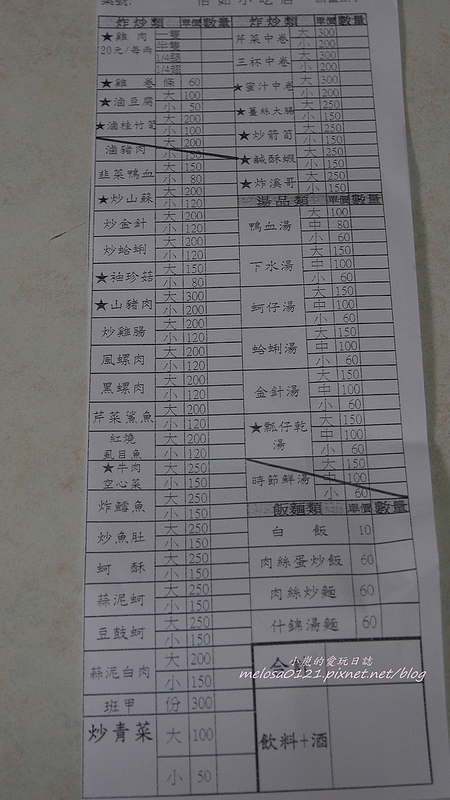 炸炒類 單價 數量
★雞肉 一隻
20元/每兩 半隻
1/4腿
1/4翅
★雞卷 條 60
★滷豆腐 大 100
小 50
★滷桂竹筍 大 200
小 100
滷豬肉 大 200
小 150
韭菜鴨血 大 150
小 80
★炒山蘇 大 200
小 120
炒金針 大 200
小 120
炒蛤蜊 大 200
小 120
★袖珍菇 大 150
小 80
★山豬肉 大 300
小 200
炒雞腸 大 200
小 120
風螺肉 大 200
小 120
黑螺肉 大 200
小 120
芹菜鯊魚 大 200
小 120
紅燒虱目魚 大 200
小 120
★牛肉空心菜 大 250
小 150
炸鱈魚 大 250
小 150
炒魚肚 大 250
小 150
蚵酥 大 250
小 150
蒜泥蚵 大 250
小 150
豆鼓蚵 大 250
小 150
蒜泥白肉 大 200
小 150
班甲 份 300
炒青菜 大 100
小 50
炸炒類 單價 數量
芹菜中卷 大 300
小 200
三杯中卷 大 300
小 200
★蜜汁中卷 大 300
小 200
★薑絲大腸 大 200
小 150
★炒箭筍 大 250
小 150
★鹹酥蝦 大 250
小 150
★炸溪哥 大 250
小 150
湯品類 單價 數量
鴨血湯 大 100
中 80
小 60
下水湯 大 150
中 100
小 60
蚵仔湯 大 150
中 100
小 60
蛤蜊湯 大 150
中 100
小 60
金針湯 大 150
中 100
小 60
★瓢仔乾湯 大 150
中 100
小 60
時節鮮湯 大 150
中 100
小 60
飯麵類 單價 數量
白飯 10
肉絲蛋炒飯 60
肉絲炒麵 60
什錦湯麵 60
小嵐的愛玩日誌
melosa0121.pixnet.net/blog
飲料+酒